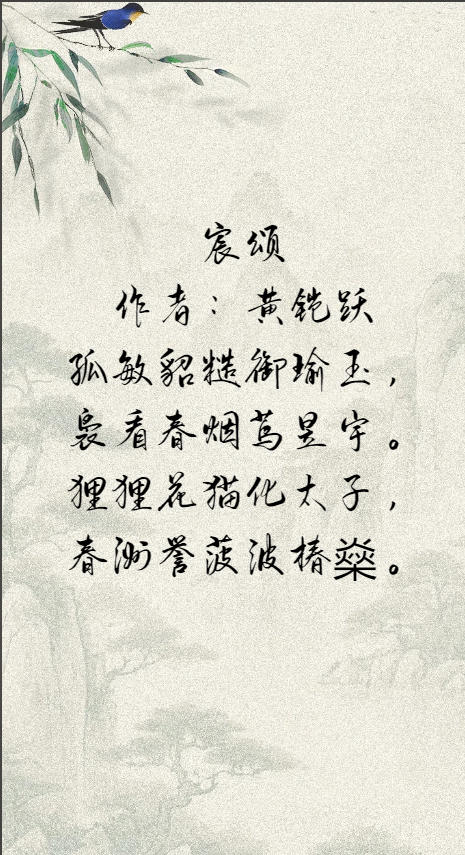 宸颂
作者：黄铠跃
孤敏貂糙御瑜玉，
裊看春烟茑昱宇。
狸狸花猫化太子，
春渺誉菠波椿燊。